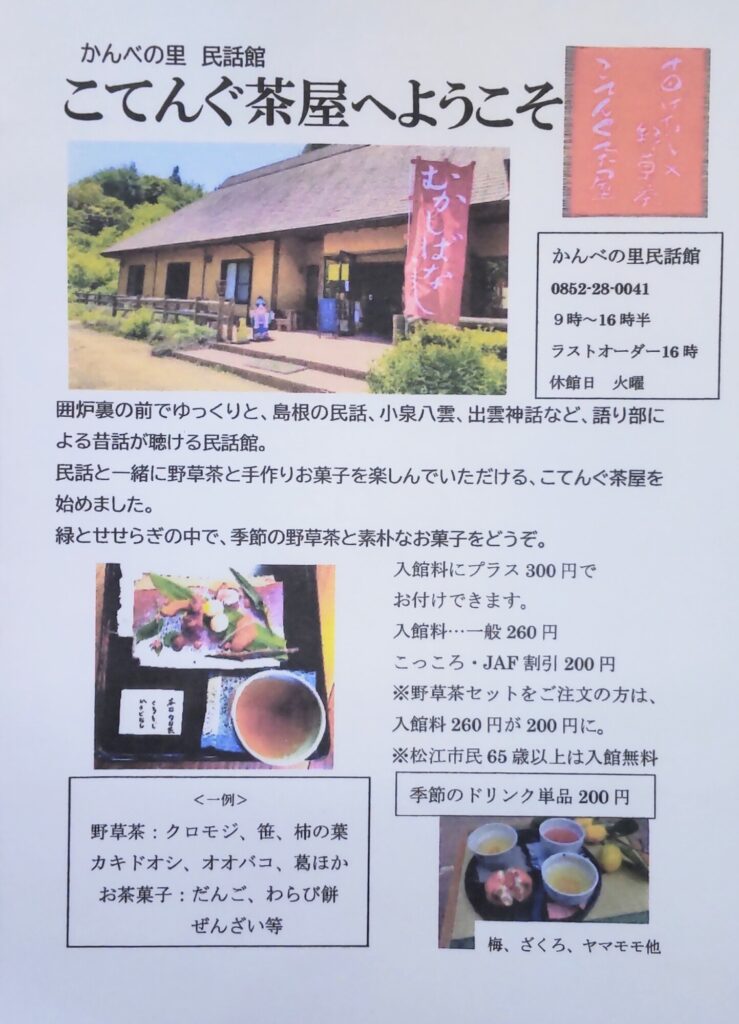 かんべの里 民話館
こてんぐ茶屋へようこそ
昔ばなしと
野草茶
こてんぐ茶屋
むかしばなし
かんべの里民話館
0852-28-0041
９時～16時半
ラストオーダー16時
休館日 火曜
囲炉裏の前でゆっくりと、島根の民話、小泉八雲、出雲神話など、語り部に
よる昔話が聴ける民話館。
民話と一緒に野草茶と手作りお菓子を楽しんでいただける、こてんぐ茶屋を
始めました。
緑とせせらぎの中で、季節の野草茶と素朴なお菓子をどうぞ。
入館料にプラス300円で
お付けできます。
入館料…一般260円
こっころ・JAF割引200円
※野草茶セットをご注文の方は、
入館料260円が200円に。
※松江市民65歳以上は入館無料
＜一例＞
野草茶：クロモジ、笹、柿の葉
カキドオシ、オオバコ、葛ほか
お茶菓子：だんご、わらび餅
ぜんざい等
季節のドリンク単品200円
梅、ざくろ、ヤマモモ他